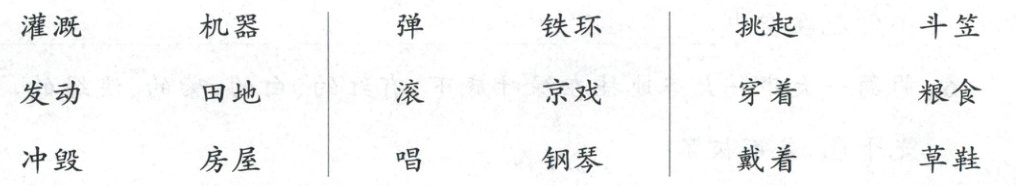 灌溉 机器 弹 铁环 挑起 斗笠
发动 田地 滚 京戏 穿着 粮食
冲毁 房屋 唱 钢琴 戴着 草鞋